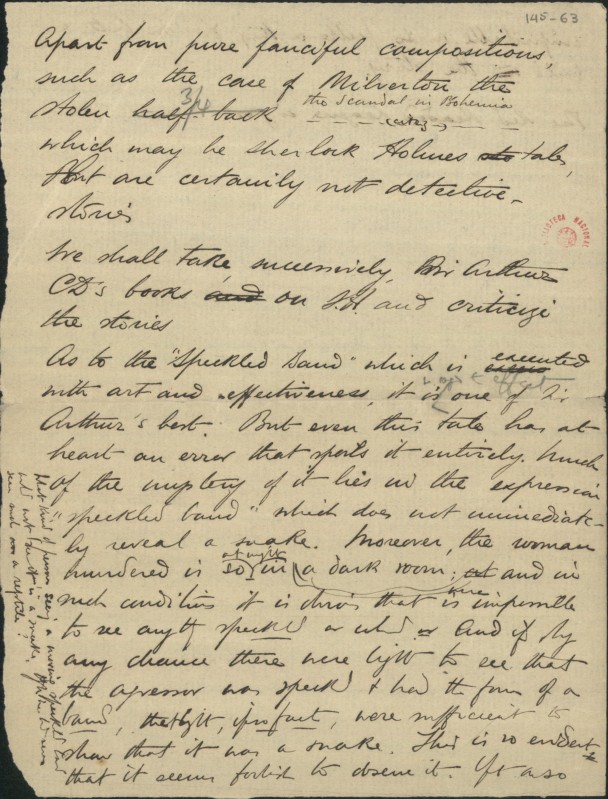 145-63
Apart from pure fanciful compositions,
such as the case of Milverton, the
stolen half back the Scandal in Bohemia
3/4
which may be Sherlock Holmes tales,
but are certainly not detective-
stories
We shall take, successively, Sir Arthur
CD's books and on S.H. and criticize
the stories
As to the "Speckled Band" which is executed
with art and effectiveness, it is one of Sir
effect
Arthur's best. But even this tale has at
heart an error that spoils it entirely. Much
of the mystery of it lies in the expression
"speckled band" which does not immediate-
ly reveal a snake. Moreover, the woman
at night
murdered is so in a dark room; and in
such conditions it is obvious that is impossible
to see anyth speckd or
And if by
any chance there were light to see that
the agressor was speckd & had the form of a
band, that light, ipso facto, were sufficient to
show that it was a snake. This is so evident
that it seems foolish to observe it. Yet also
What kind of person seeing a moving speckled band
wd not think it a snake,
seen such a reptile.
BIBLIOTECA NACIONAL